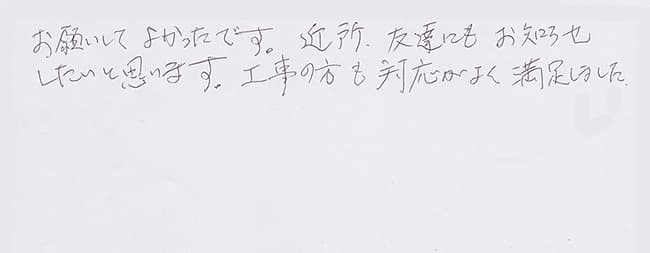 お願いして よかったです。近所、友達にも お知らせ
したいと思います。工事の方も 対応がよく 満足しました。